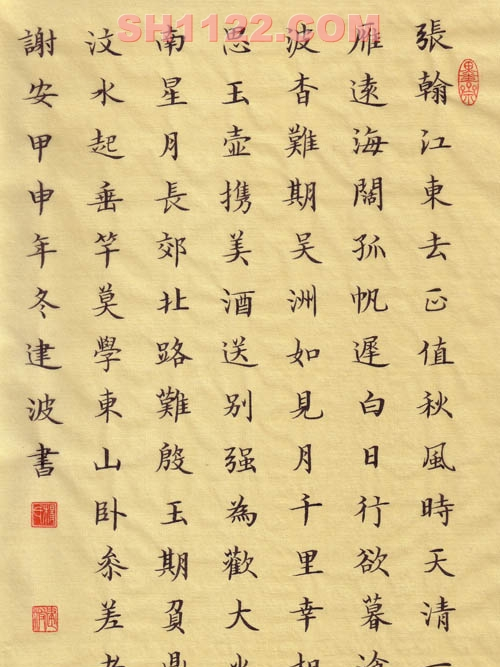 SH1122.COM
張翰江東去正值秋風時天清一
雁遠海闊孤帆遲白日行欲暮滄
波杳難期吳洲如見月千里幸相
思玉壺携美酒送别强為歡大火
南星月長郊北路難殷王期負鼎
汶水起垂竿莫學東山卧參差老
謝安甲申年冬建波書